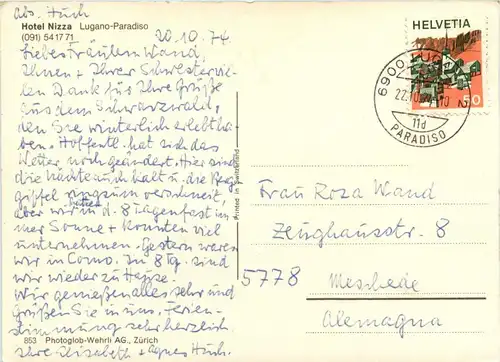 Abs. Huch
Hotel Nizza Lugano-Paradiso
(091) 54 17 71
20.10.74
Liebes Fräulein Wand,
Ihnen + Ihrer Schwester vie-
len Dank für Ihre Grüße
aus dem Schwarzwald,
den Sie winterlich erlebt ha-
ben. Hoffentl. hat sich das
Wetter noch geändert. Hier sind
die Nächte auch kalt u. die Berg-
gipfel ringsum verschneit,
aber wir hatten in d. 8 Tagen fast im-
mer Sonne + konnten viel
unternehmen. Gestern waren
wir in Como. In 8 Tg. sind
wir wieder zu Hause.
Wir genießen alles sehr und
grüßen Sie in uns. Ferien-
stimmung sehr herzlich
Ihre Elisabeth + Agnes Huch.
853 Photoglob-Wehrli AG., Zürich
Printed in Switzerland
HELVETIA
50
6900 LUGANO 2
22.10.74
11d
PARADISO
Frau Roza Wand
Zeughausstr. 8
5778 Meschede
Alemagna